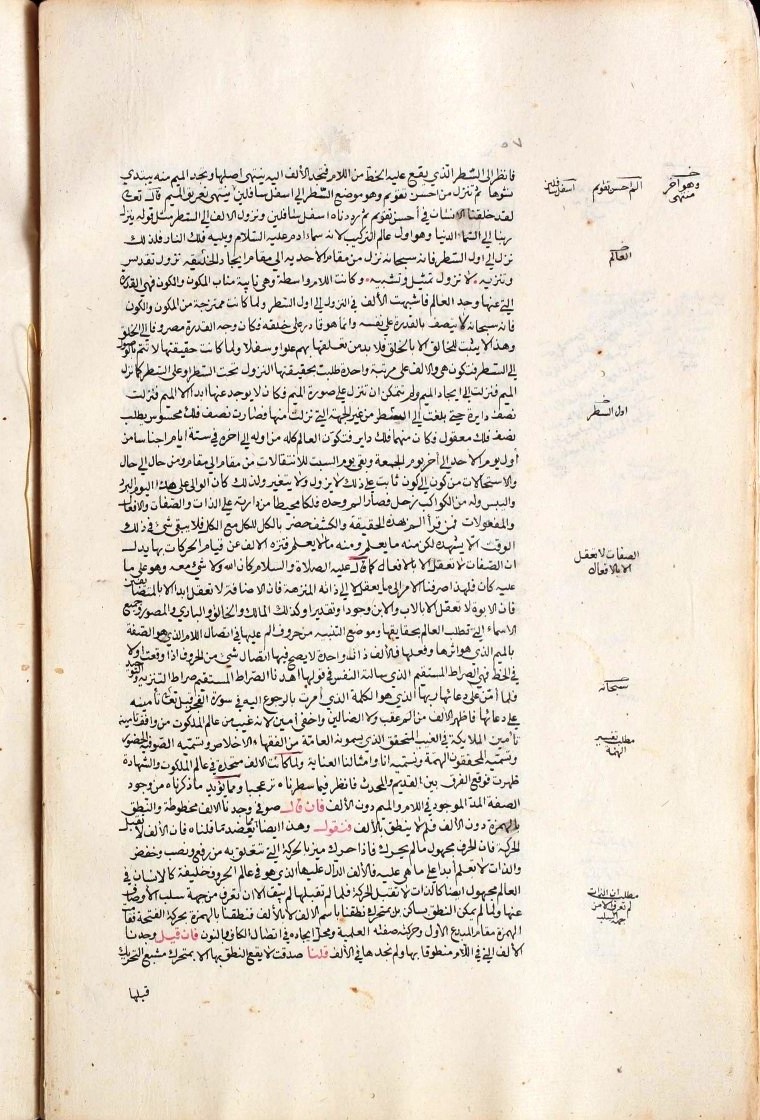 ٥٧
فانظر الى الشطر الذي يقع عليه الخط من اللام فتجد الألف اليه ينتهي اصلها وتجد الميم منه يبتدي
نشوها ثم تنزل من احسن تقويم وهو موضع الشطر الى اسفل سافلين ينتهي تعريق الميم قال تعالى
لقد خلقنا الانسان في أحسن تقويم ثم رددناه اسفل سافلين ونزول الالف الى الشطر مثل قوله ينزل
ربنا الى السماء الدنيا وهو اول عالم التركيب لانه سماء ادم عليه السلام ويليه فلك النار فلذلك
نزل الى اول الشطر فانه سبحانه نزل من مقام الأحدية الى مقام ايجاد الخليقة نزول تقديس
وتنزيه لا نزول تمثيل وتشبيه وكانت اللام واسطة وهي نايبة مناب المكون والكون فهي القدرة
التي عنها وجد العالم فاشبهت الألف في النزول الى اول الشطر ولما كانت ممتزجة من المكون والكون
فانه سبحانه لا يتصف بالقدرة على نفسه وانما هو قادر على خلقه فكان وجه القدرة مصروفا الى الخلق
وهذا لا يثبت للخالق الا بالخلق فلا بد من تعلقها بهم علوا وسفلا ولما كانت حقيقتها لا تتم بالوصول
الى الشطر فتكون هي والالف على مرتبة واحدة طلبت بحقيقتها النزول تحت الشطر او على الشطر كما نزل
الميم فنزلت الى ايجاد الميم ولم يتمكن ان تنزل على صورة الميم فكان لا يوجد عنها ابدا الا الميم فنزلت
نصف دايرة حتى بلغت الى الشطر من غير الجهة التي نزلت منها فصارت نصف فلك محسوس يطلب
نصف فلك معقول فكان منهما فلك داير فتكون العالم كله من اوله الى اخره في ستة ايام اجناسا من
أول يوم الاحد الى آخر يوم الجمعة وبقى يوم السبت للانتقالات من مقام الى مقام ومن حال الى حال
والاستحالات من كون الى كون ثابت على ذلك لا يزول ولا يتغير ولذلك كان الوالى على هذا اليوم البرد
واليبس وله من الكواكب زحل فصار الم وحده فلكا محيطا من دار به علم الذات والصفات والافعال
والمفعولات فمن قرأ الم بهذه الحقيقة والكشف حضر بالكل للكل مع الكل فلا يبقى شيء في ذلك
الوقت الا يشهده لكن منه ما يعلم ومنه ما لا يعلم فتنزه الالف عن قيام الحركات بها يدل
ان الصفات لا تعقل الا بالافعال كما قال عليه الصلاة والسلام كان الله ولا شيء معه وهو على ما
عليه كان فلهذا صرفنا الامر الى ما يعقل لا الى ذاته المنزهة فان الاضافة لا تعقل ابدا الا بالمتضايفين
فان الابوة لا تعقل الا بالاب والابن وجودا وتقديرا وكذلك المالك والخالق والباري والمصور وجميع
الاسماء التي تطلب العالم بحقايقها وموضع التنبيه من حروف الم عليها في اتصال اللام الذي هو الصفة
بالميم الذي هو اثرها وفعلها فالألف ذات واحدة لا يصح فيها اتصال شيء من الحروف اذا وقعت اولا
في الخط فهي الصراط المستقيم الذي سالته النفس في قولها اهدنا الصراط المستقيم صراط التنزيه والتوحيد
فلما أمن على دعائها ربها الذي هو الكلمة الذي أمرت بالرجوع اليه في سورة الفجر قبل تعالى تامينه
على دعائها فاظهر الألف من الم عقب ولا الضالين واخفى آمين لانه غيب من عالم الملكوت من وافق تامينه
تأمين الملايكة في الغيب المتحقق الذي يسمونه العامة من الفقهاء الاخلاص وتسميه الصوفية الحضور
وتسميه المحققون الهمة ونسميه انا وامثالنا العناية ولما كانت الالف متحدة في عالم الملكوت والشهادة
ظهرت فوقع الفرق بين القديم والمحدث فانظر فيما سطرناه تر عجبا ومما يؤيد ما ذكرناه من وجود
الصفة المد الموجود في اللام والميم دون الألف فان قال صوفي وجدنا الالف مخطوطة والنطق
بالهمزة دون الألف فلم لا ينطق بالألف فنقول وهذا ايضا مما يعضد ما قلناه فان الألف لا تقبل
الحركة فان الحرف مجهول ما لم يحرك فاذا حرك ميز بالحركة التي تتعلق به من رفع ونصب وخفض
والذات لا تعلم ابدا على ما هي عليه فالألف الدال عليها الذي هو في عالم الحروف خليفة كالانسان في
العالم مجهول ايضا كالذات لا تقبل الحركة فلما لم تقبلها لم يبق الا ان تعرف من جهة سلب الأوصاف
عنها ولما لم يمكن النطق بساكن نطقنا باسم الالف لا بالألف فنطقنا بالهمزة بحركة الفتحة فقامت
الهمزة مقام المبدع الأول وحركتها صفته العلمية ومحل ايجاده في اتصال الكاف والنون فان قيل وجدنا
الألف التي في اللام منطوقا بها ولم نجدها في الألف قلنا صدقت لا يقع النطق بها الا بمتحرك مشبع التحريك
قبلها
وهو آخر منتهى
الم احسن تقويم
اسفل سافلين
العالم
اول السطر
الصفات لا تعقل
الا بالافعال
سبحانه
مطلب تفسير
الهمة
مطلب ان الذات
لم تعرف الا من
جهة سلب